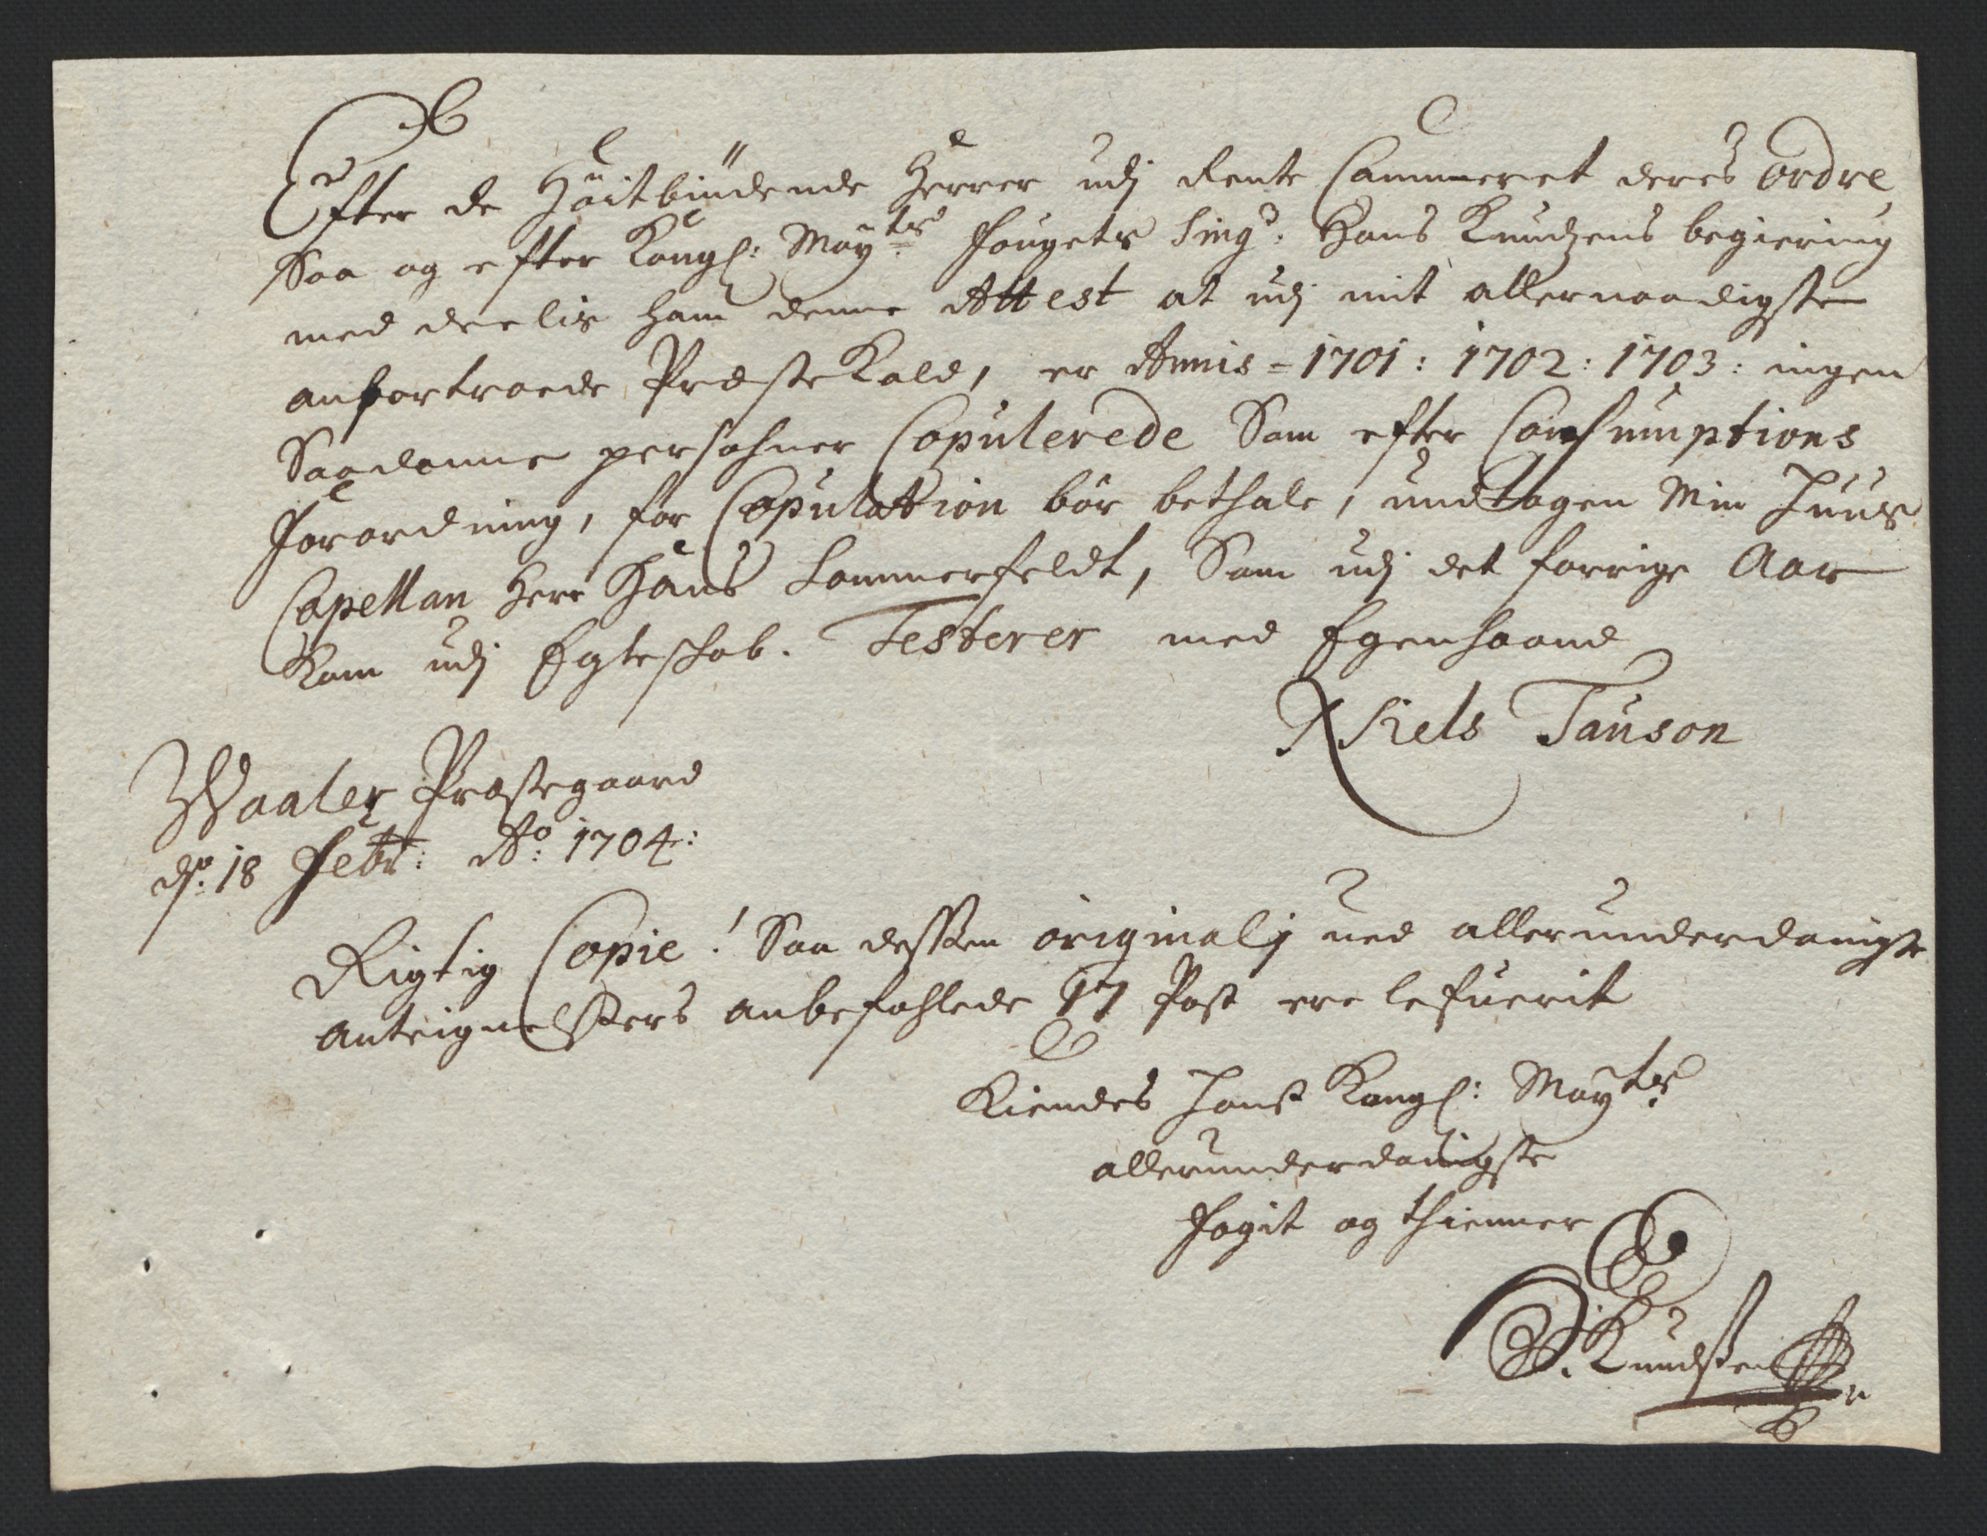 Efter de Höitbiudende Herrer udj Rente Cammeret deres Ordre,
Saa og efter Kongl: Mayts Fougets Sing.r Hans Knudzens begiering
med deelis ham denne Attest at udj mit allernaadigste
anfortroede Præste Kald, er Annis = 1701: 1702: 1703: ingen
Saadanne persohner Copulerede Som efter Consumptions
Forordning, for Copulation bör bethale, undtagen Min Huus
Capellan Herr Hans Sommerfeldt, Som udj det forrige Aar
Kom udj Egteskab. Testerer med Egenhaand
Niels Tauson
Waaler Præstegaard
ds: 18 Febr: Ao: 1704:
Rigtig Copie! Saa dessen originalj ved allerunderdanigste
Anteignelssers anbefahlede 17 Post ere lefuerit
Kiendes Hans Kongl: Mayts
allerunderdanigste
Fogit og thienner
H. Knudssen